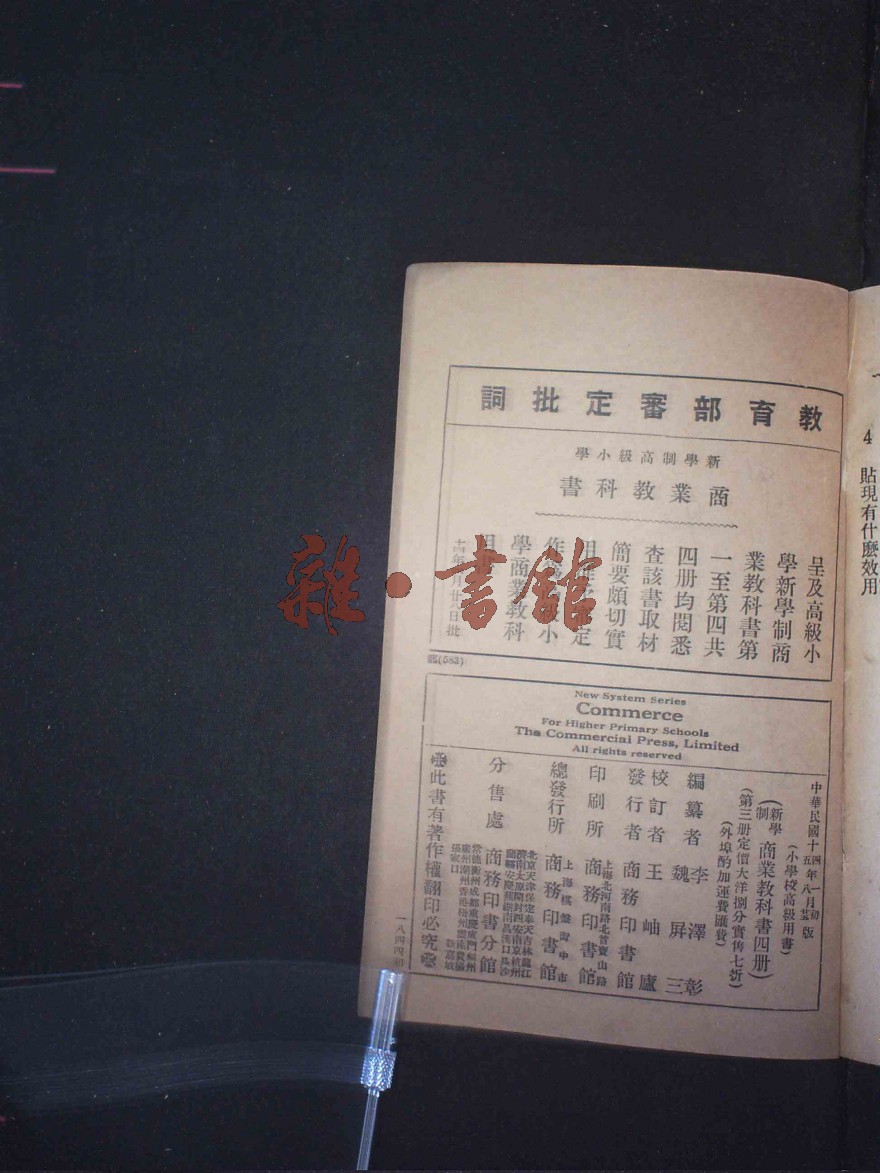 教育部審定批詞
新學制高級小學
商業教科書
呈及高級小
學新學制商
業教科書第
一至第四共
四册均閱悉
查該書取材
簡要頗切實
用
定
作
級小
學商業教科
用書
月廿八日批
(583)
New System Series
Commerce
For Higher Primary Schools
The Commercial Press, Limited
All rights reserved
中華民國十四年一月初版
十五年八月
(小學校高級用書)
(新學制)商業教科書四册)
(第三册定價大洋捌分實售七折)
(外埠酌加運費匯費)
編纂者 李澤彰
魏屏三
校訂者 王岫廬
發行者 商務印書館
印刷所 上海北河南路北首寶山路
商務印書館
總發行所 上海棋盤街中市
商務印書館
分售處 商務印書分館
北京天津保定奉天吉林龍江
濟南太原開封西安南京杭州
張家口
此書有著作權翻印必究
一八四四
4 貼現有什麽效用
雜·書館